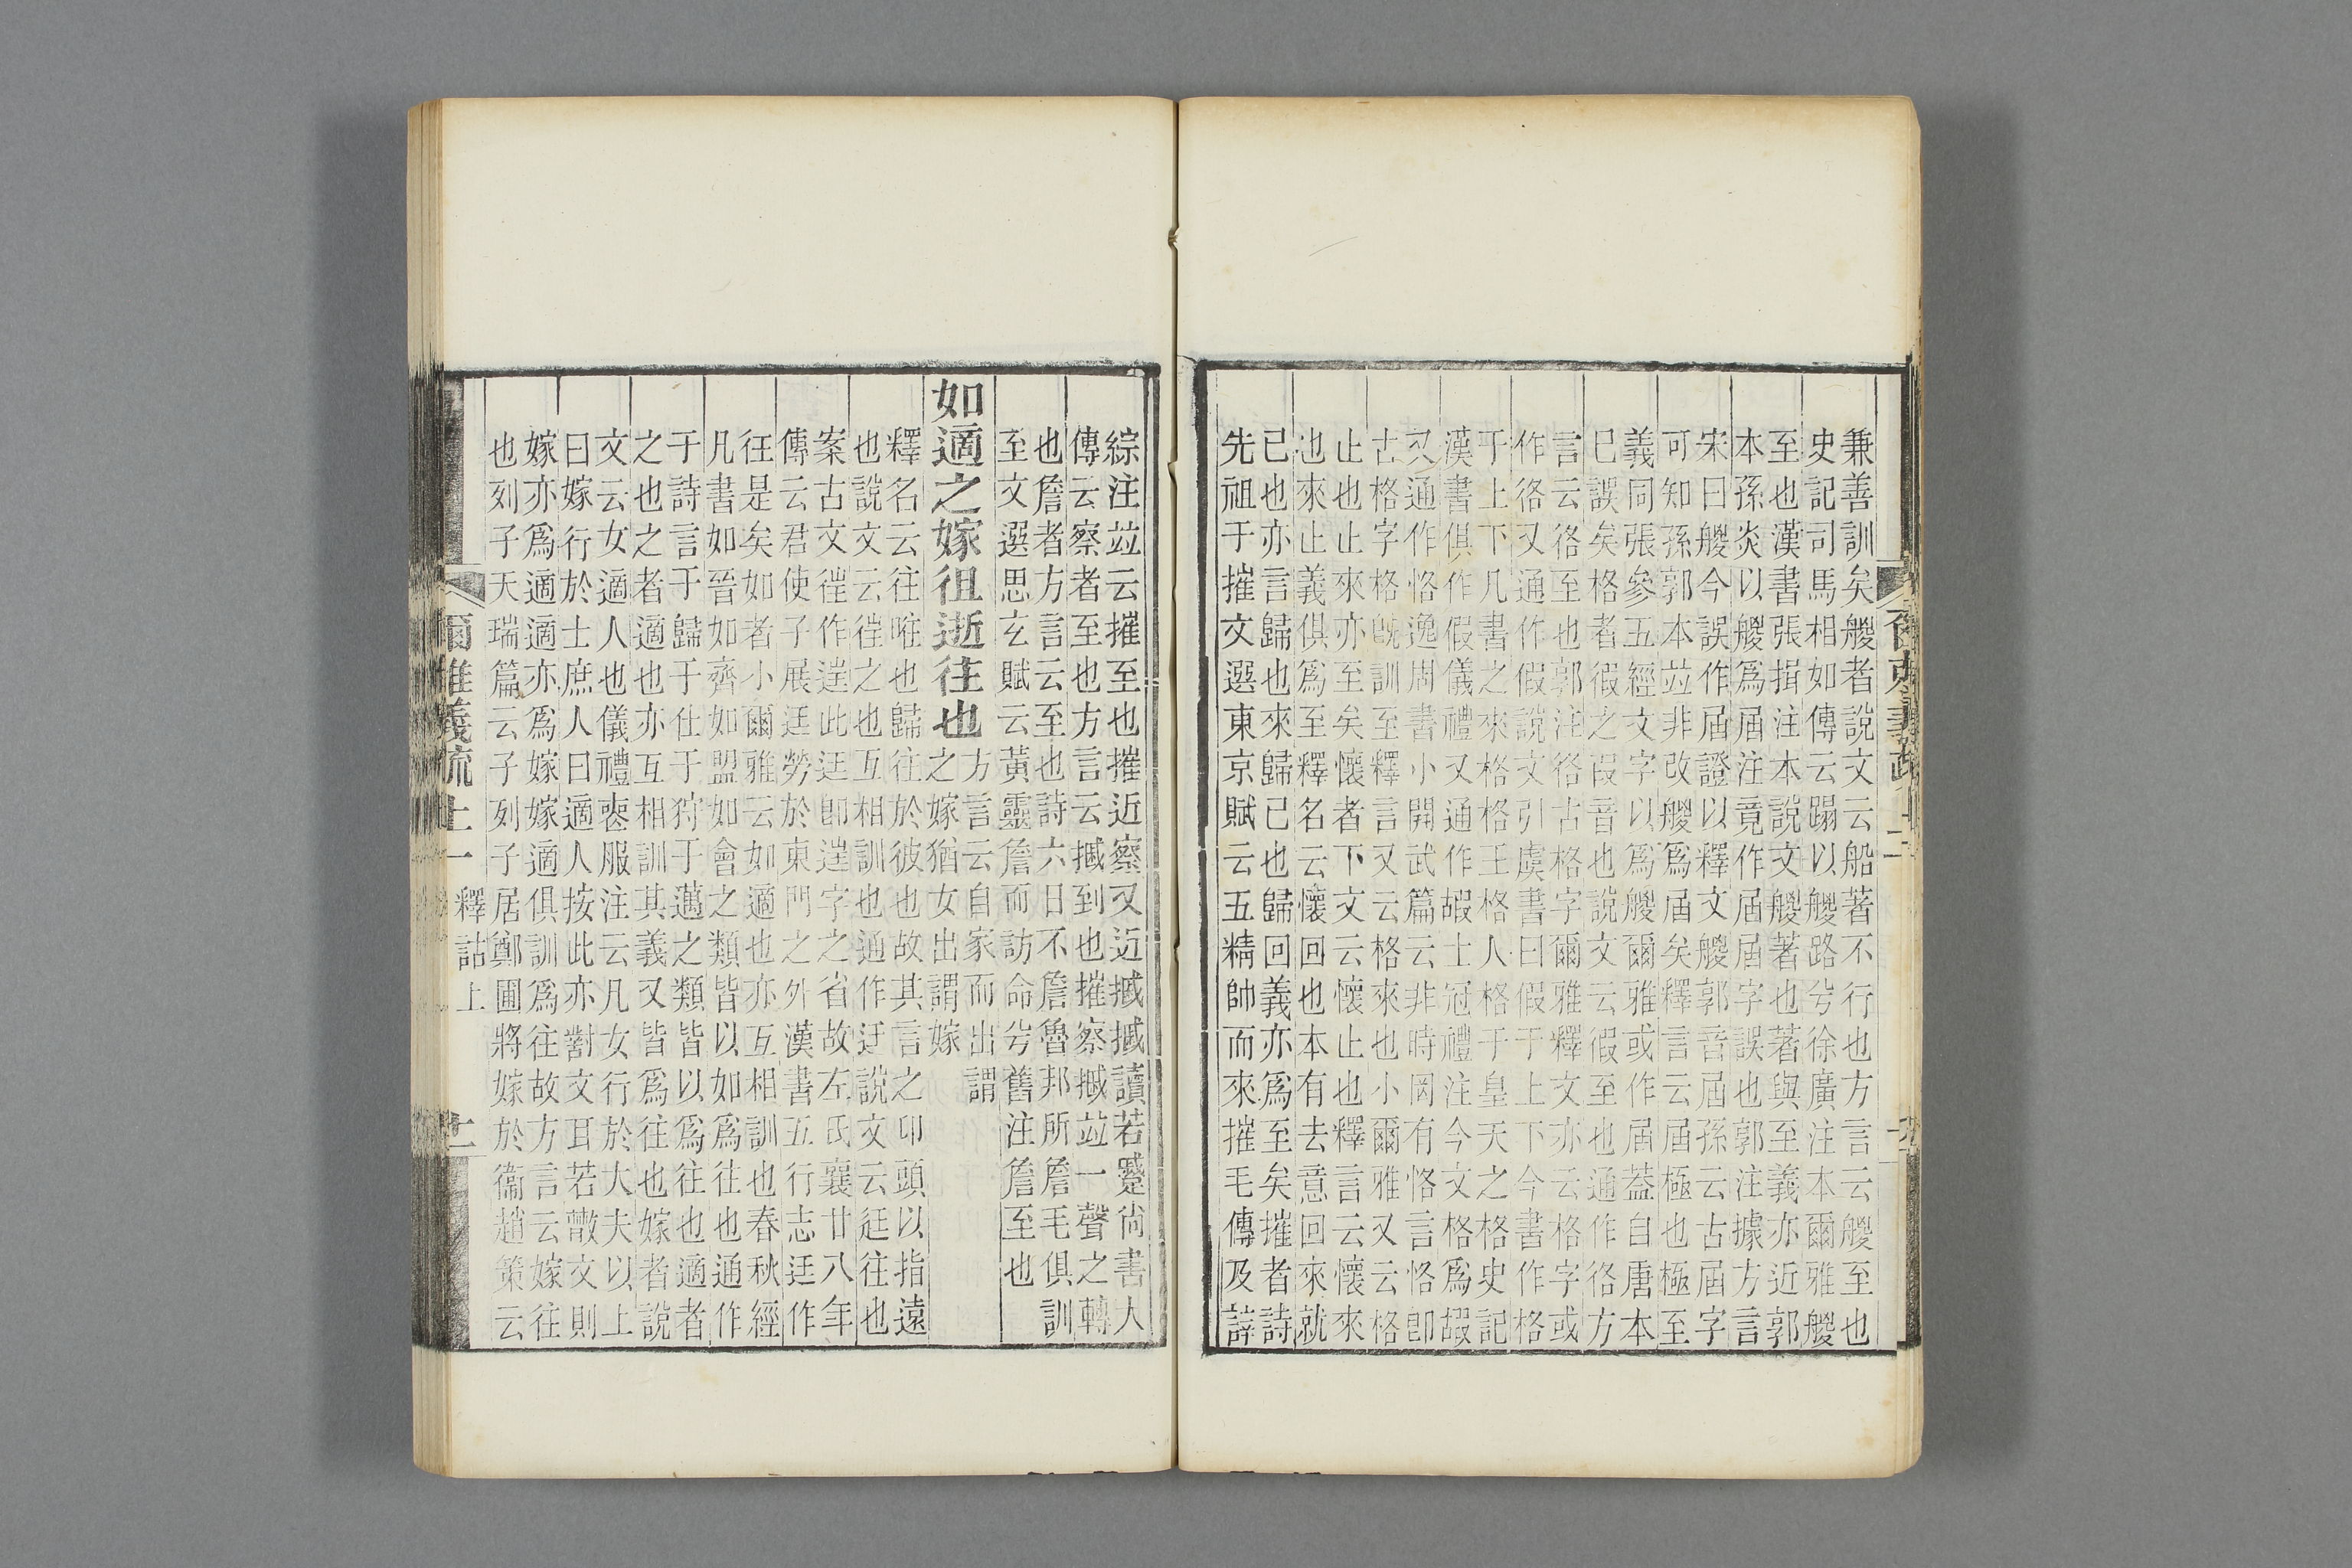 兼善訓矣艐者說文云船著不行也方言云艐至也
史記司馬相如傳云蹋以艐路兮徐廣注本爾雅艐
至也漢書張揖注本說文艐著也著與至義亦近郭
本孫炎以艐爲屆注竟作屆屆字誤也郭注據方言
宋曰艐今誤作屆證以釋文艐郭音屆孫云古屆字
可知孫郭本竝非改艐爲屆矣釋言云屆極也極至
義同張參五經文字以爲艐爾雅或作屆蓋自唐本
已誤矣格者徦之叚音也說文云徦至也通作佫方
言云佫至也郭注佫古格字爾雅釋文亦云格字或
作佫又通作假說文引虞書曰假于上下今書作格
于上下凡書之來格格王格人格于皇天之格史記
漢書俱作假儀禮又通作嘏士冠禮注今文格爲嘏
又通作恪逸周書小開武篇云非時罔有恪言恪即
古格字格旣訓至釋言又云格來也小爾雅又云格
止也止來亦至矣懷者下文云懷止也釋言云懷來
也來止義俱爲至釋名云懷回也本有去意回來就
已也亦言歸也來歸已也歸回義亦爲至矣摧者詩
先祖于摧文選東京賦云五精帥而來摧毛傳及薛
綜注竝云摧至也摧近察又近摵摵讀若蹙尙書大
傳云察者至也方言云摵到也摧察摵竝一聲之轉
也詹者方言云至也詩六日不詹魯邦所詹毛俱訓
至文選思玄賦云黃靈詹而訪命兮舊注詹至也
如適之嫁徂逝往也方言云自家而出謂
之嫁猶女出謂嫁
釋名云往暀也歸往於彼也故其言之卬頭以指遠
也說文云徃之也互相訓也通作迋說文云迋往也
案古文徃作𨓹此迋卽𨓹字之省故左氏襄廿八年
傳云君使子展迋勞於東門之外漢書五行志迋作
往是矣如者小爾雅云如適也亦互相訓也春秋經
凡書如晉如齊如盟如會之類皆以如爲往也通作
于詩言于歸于仕于狩于邁之類皆以爲往也適者
之也之者適也亦互相訓其義又皆爲往也嫁者說
文云女適人也儀禮喪服注云凡女行於大夫以上
曰嫁行於士庶人曰適人按此亦對文耳若散文則
嫁亦爲適適亦爲嫁嫁適俱訓爲往故方言云嫁往
也列子天瑞篇云子列子居鄭圃將嫁於衞趙策云
爾雅義疏上一 釋詁上